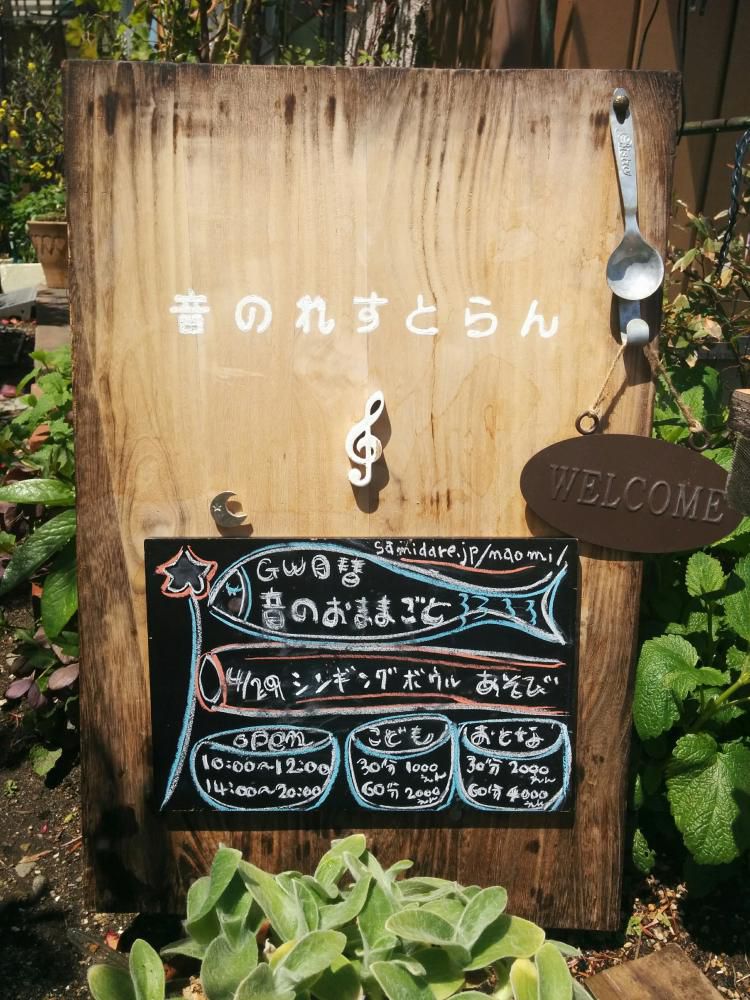 音のれすとらん
WELCOME
samidare.jp/naomi/
GW日替
音のおままごと
4/29 シンギングボウル あそび
open
10:00~12:00
14:00~20:00
こども
30分 1000
60分 2000
おとな
30分 2000
60分 4000